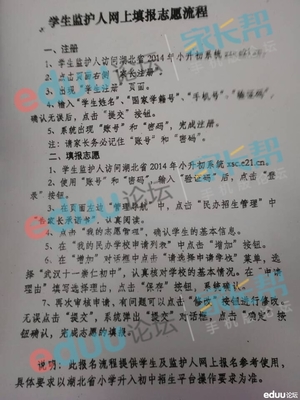 学生监护人网上填报志愿流程
一、注册
1、学生监护人访问湖北省2014年小升初系统
2、点击页面右侧“家长注册”
3、出现“学生注册”页面。
4、输入“学生姓名”、“国家学籍号”、“手机号”、
确认无误后，点击“提交”按钮。
5、系统出现“账号”和“密码”，完成注册。
注：请家长务必记住“账号”和“密码”。
二、填报志愿
1、学生监护人访问湖北省2014年小升初系统 zsc.e21.cn。
2、使用“账号”和“密码”，输入“验证码”后，点击“登
录”按钮。
3、在页面左边“管理导航”中，点击“民办招生管理”中
家长承诺书”，认真阅读。
4、点击“我的志愿管理”，确认学生的基本信息。
5、在“我的民办学校申请列表”中点击“增加”按钮。
6、在“增加”对话框中点击“请选择申请学校”菜单，选
择“武汉十一滨江初中”，认真核对学校的基本情况。在“申请
理由”填写选择理由，点击“保存”按钮，系统确认。
7、再次审核申请，有问题可以点击“修改”按钮进行修改，
无误点击“提交”，系统弹出“提交”对话框，点击“确定”按
钮确认，完成志愿的填报。
说明：此报名流程提供学生及监护人网上报名参考使用，
具体要求以湖北省小学升入初中招生平台操作要求为准。
家长帮
eduu论坛
手机客户端
eduu论坛